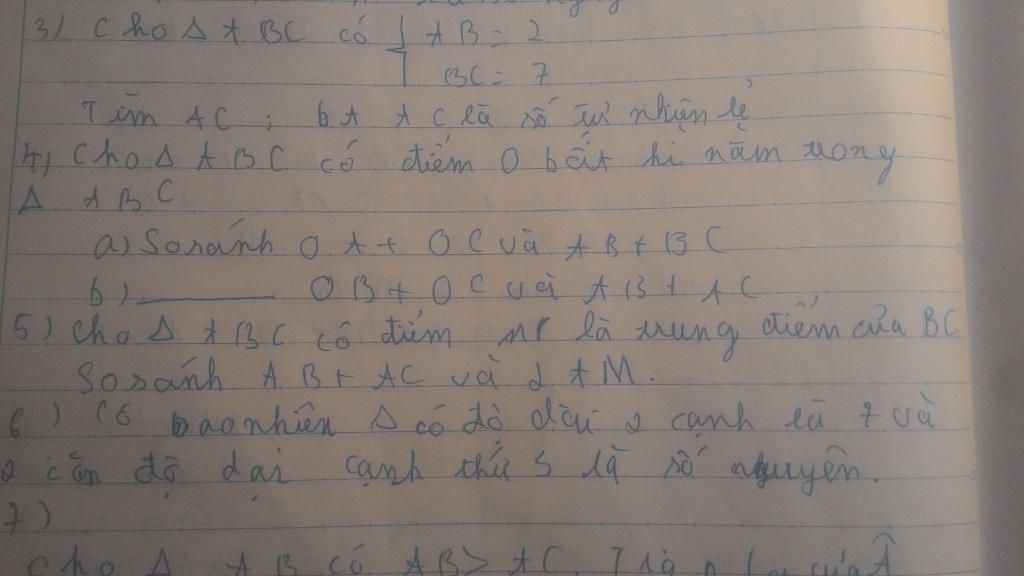 3) Cho Δ ABC có { AB = 2
BC = 7
Tìm AC ; bt AC là số tự nhiên lẻ
4) Cho Δ ABC có điểm O bất kì nằm trong
Δ ABC
a) So sánh OA + OC và AB + BC
b) ———— OB + OC và AB + AC
5) Cho Δ ABC có điểm M là trung điểm của BC
So sánh AB + AC và 2 AM.
6) Có bao nhiên Δ có độ dài 2 cạnh là 7 và
2 còn độ dại cạnh thứ 3 là số nguyên.
7)
Cho Δ AB có AB > AC của Â